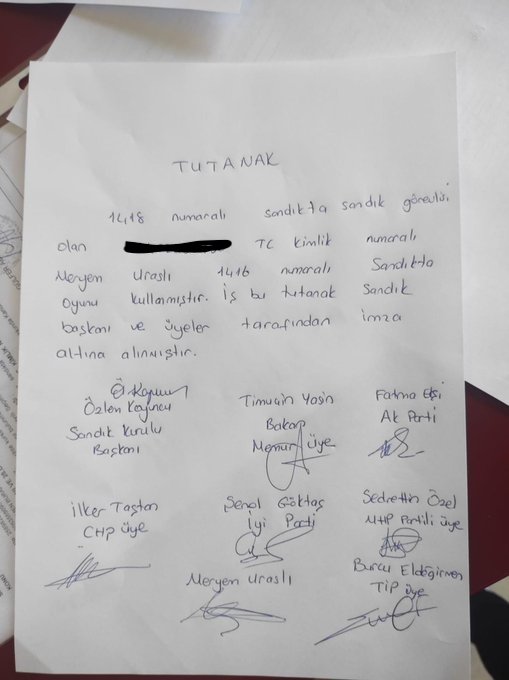 TUTANAK
1418 numaralı sandıkta sandık görevlisi
olan TC kimlik numaralı
Meryem Uraslı 1416 numaralı Sandıkta
oyunu kullanmıştır. İş bu tutanak sandık
başkanı ve üyeler tarafından imza
altına alınmıştır.
Özlen Koyuncu
Sandık Kurulu
Başkanı
Timuçin Yasin
Bakar
Memur üye
Fatma Elçi
Ak Parti
İlker Taştan
CHP üye
Şenol Göktaş
İyi Parti
Sedrettin Özel
MHP Partili üye
Meryem Uraslı
Burcu Eldöğirmen
TİP üye